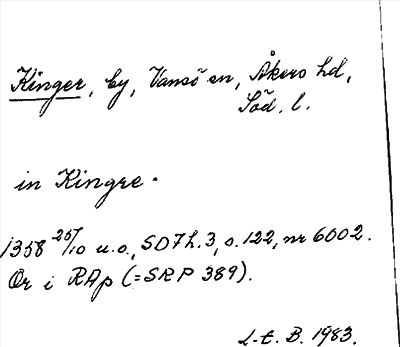 Kinger, by, Vansö sn, Åkers hd,
Söd. l.
in Kingre.
1358 25/10 u.o., SD7h.3, s.122, nr 6002.
Or i RAp (=SRP 389).
L-t. B. 1983.